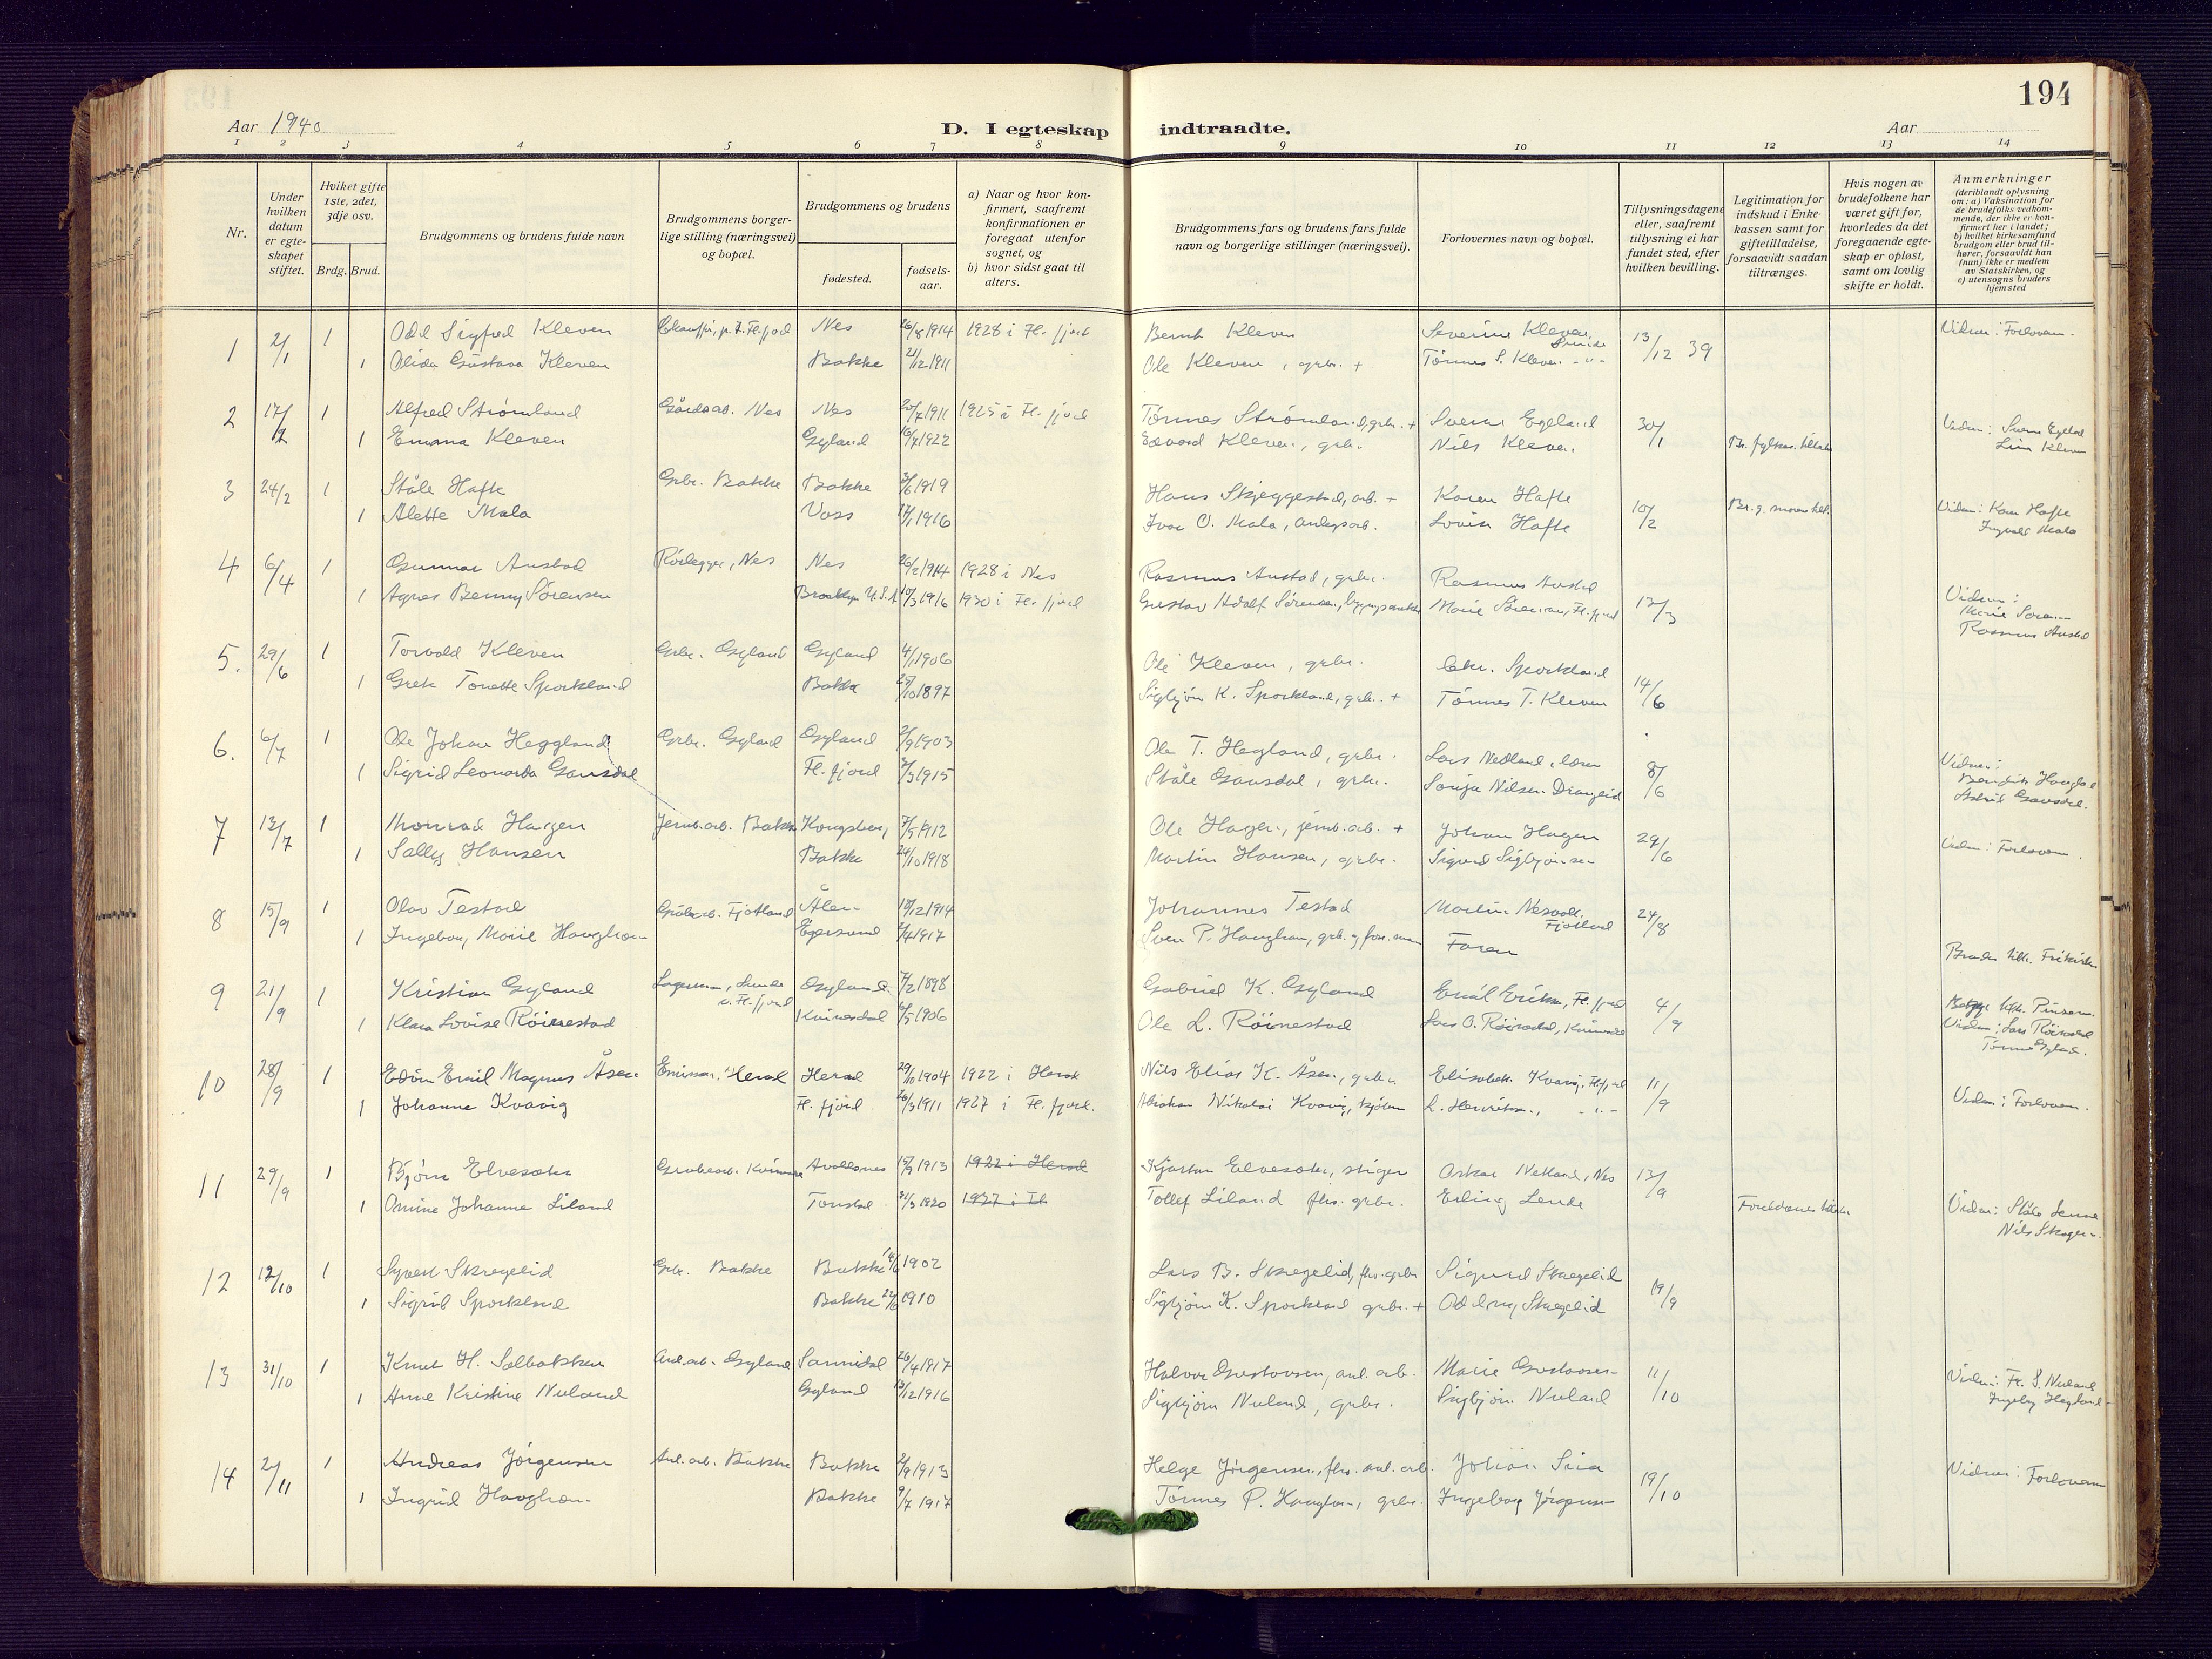 194
Aar 1940
D. I egteskap indtraadte.
Aar
1 2 3 4 5 6 7 8 9 10 11 12 13 14
Nr.
Under hvilken datum er egteskapet stiftet.
Hviket gifte 1ste, 2det, 3dje osv.
Brdg. Brud.
Brudgommens og brudens fulde navn
Brudgommens borgerlige stilling (næringsvei) og bopæl.
Brudgommens og brudens
fødested.
fødselsaar.
a) Naar og hvor konfirmert, saafremt konfirmationen er foregaat utenfor sognet, og
b) hvor sidst gaat til alters.
Brudgommens fars og brudens fars fulde navn og borgerlige stillinger (næringsvei).
Forlovernes navn og bopæl.
Tillysningsdagene eller, saafremt tillysning ei har fundet sted, efter hvilken bevilling.
Legitimation for indskud i Enkekassen samt for giftetilladelse, forsaavidt saadan tiltrænges.
Hvis nogen av brudefolkene har været gift før, hvorledes da det foregaaende egteskap er opløst, samt om lovlig skifte er holdt.
Anmerkninger (deriblandt oplysning om: a) Vaksination for de brudefolks vedkommende, der ikke er konfirmert her i landet; b) hvilket kirkesamfund brudgom eller brud tilhører, forsaavidt han (hun) ikke er medlem av Statskirken, og c) utensogns bruders hjemsted
1 2/1 1 Odd Sigfred Kleven Nes 26/8 1914 1928 i Fl. fjord Bernt Kleven Severine Kleven 13/12 39 Vidner: Forlovern.
1 Olida Gustava Kleven Bakke 21/12 1911 Ole Kleven, grbr. + Tönnes S. Kleven -"-
2 17/2 1 Alfred Strömland Gårdsarb. Nes Nes 1911 1925 i Fl. fjord Tönnes Strömland, grbr. + Sverre Egeland 30/1 Vidner: Sverre Egeland
1 Emma Kleven Gyland 1922 Edvard Kleven, grbr. Nils Kleven
3 24/2 1 Ståle Hafte Grbr. Bakke Bakke 1919 Hans Skjeggestad, arb. + Karen Hafte 10/2 Vidner: Karen Hafte
1 Alette Mala Voss 1916 Ivar O. Mala, anlegsarb. Lovise Hafte Ingvald Mala
4 6/4 1 Gunnar Austad Rörlegger, Nes Nes 1914 1928 i Nes Rasmus Austad, grbr. Rasmus Austad 13/3 Vidner:
1 Agnes Benny Sörensen Brooklyn U.S.A 1916 1930 i Fl. fjord Gustav Adolf Sörensen Marie Sörensen, Fl. fjord Rasmus Austad
5. 29/6 1 Torvald Kleven Grbr. Gyland Gyland 4/1 1906 Ole Kleven, grbr. Chr. Sporkland 14/6
1 Grete Tonette Sporkland Bakke 25/10 1897 Sigbjörn K. Sporkland, grbr. + Tönnes T. Kleven
6. 6/7 1 Ole Johan Heggland Grbr. Gyland Gyland 1903 Ole T. Hegland, grbr. Lars Nedland, lærer 8/6 Vidner:
1 Sigrid Leonarda Gausdal Fl. fjord 1915 Ståle Gausdal, grbr. Sonja Nilsen Drangeid Astrid Gausdal.
7 13/7 1 Monrad Hagen Jernb.arb. Bakke Kongsberg 7/5 1912 Ole Hagen, jernb.arb. + Johan Hagen 29/6 Vidner: Forlovern.
1 Sally Hansen Bakke 24/10 1918 Martin Hansen, grbr. Sigurd Sigbjörnsen
8 15/9 1 Olav Testad Fjotland Ålen 1914 Johannes Testad Martin Nesvold, Fjotland 24/8
1 Ingeborg Marie Haughom Egersund 1917 Sven P. Haughom Faren
9 21/9 1 Kristian Gyland Gyland 7/2 1898 Gabriel K. Gyland Emil Eriksen, Fl. fjord 4/9
1 Klara Lovise Röinestad Kvinesdal 1906 Ole L. Röinestad Lars O. Röinestad, Kvinesdal
10 28/9 1 Edvin Emil Magnus Åsen Emissær, Herad Herad 1904 1922 i Herad Nils Elias K. Åsen, grbr. Elisabeth Kvavig, Fl.fjord 11/9
1 Johanne Kvavig Fl. fjord 1911 1927 i Fl. fjord. Abraham Nikolai Kvavig L. Henriksen, -"- Vidner: Forlovern.
11 29/9 1 Björn Elvesæter Grubearb. Kvinesdal Avaldsnes 1913 1922 i Herad Kjartan Elvesæter, stiger Oskar Netland, Nes 13/9
1 Omine Johanne Liland Tonstad 1920 1927 i Fl Tollef Liland fhv. grbr. Erling Lende
12 12/10 1 Syvert Skregelid Grbr. Bakke Bakke 1902 Lars B. Skregelid, fhv. grbr. Sigurd Skregelid 19/9
1 Sigrid Sporkland Bakke 1910 Sigbjörn K. Sporkland grbr. + Skregelid
13 31/10 1 Knut H. Solbakken Anl.arb. Gyland Sannidal 26/4 1917 Halvor Gustavsen, anl. arb. Marie Gustavsen 11/10 Vidner: Fr. S. Nuland
1 Anne Kristine Nuland Gyland 13/12 1916 Sigbjörn Nuland, grbr. Sigbjörn Nuland Ingeborg Hegland
14 2/11 1 Andreas Jörgensen Anl. arb. Bakke Bakke 1913 Helge Jörgensen, fhv. anl. arb. Johan Sira 19/10 Vidner: Forlovern
1 Ingrid Haughom Bakke 9/7 1917 Tönnes P. Haughom, grbr. Ingeborg Jörgensen